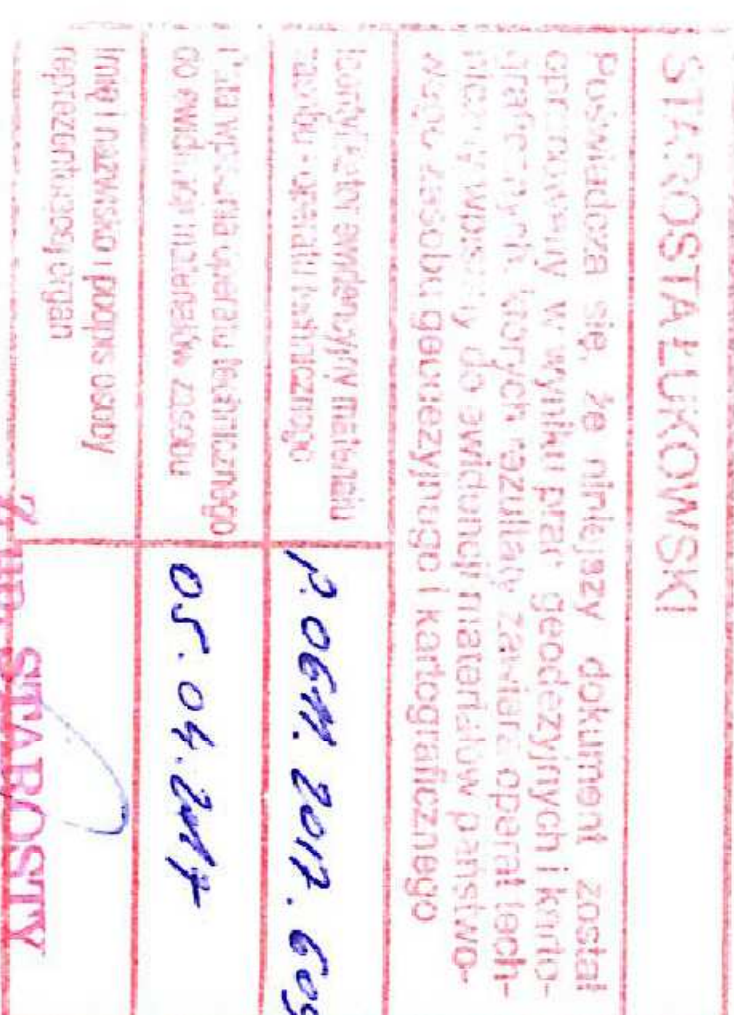 STAROSTA ŁUKOWSKI
Poświadcza się, że niniejszy dokument został
opracowany w wyniku prac geodezyjnych i karto-
graficznych, których rezultaty zawiera operat tech-
niczny wpisany do ewidencji materiałów państwo-
wego zasobu geodezyjnego i kartograficznego
Identyfikator ewidencyjny materiału
zasobu - operatu technicznego
P.0611.2017.609
Data wpisania operatu technicznego
do ewidencji materiałów zasobu
05.04.2017
Imię i nazwisko i podpis osoby
reprezentującej organ
Z UP. STAROSTY